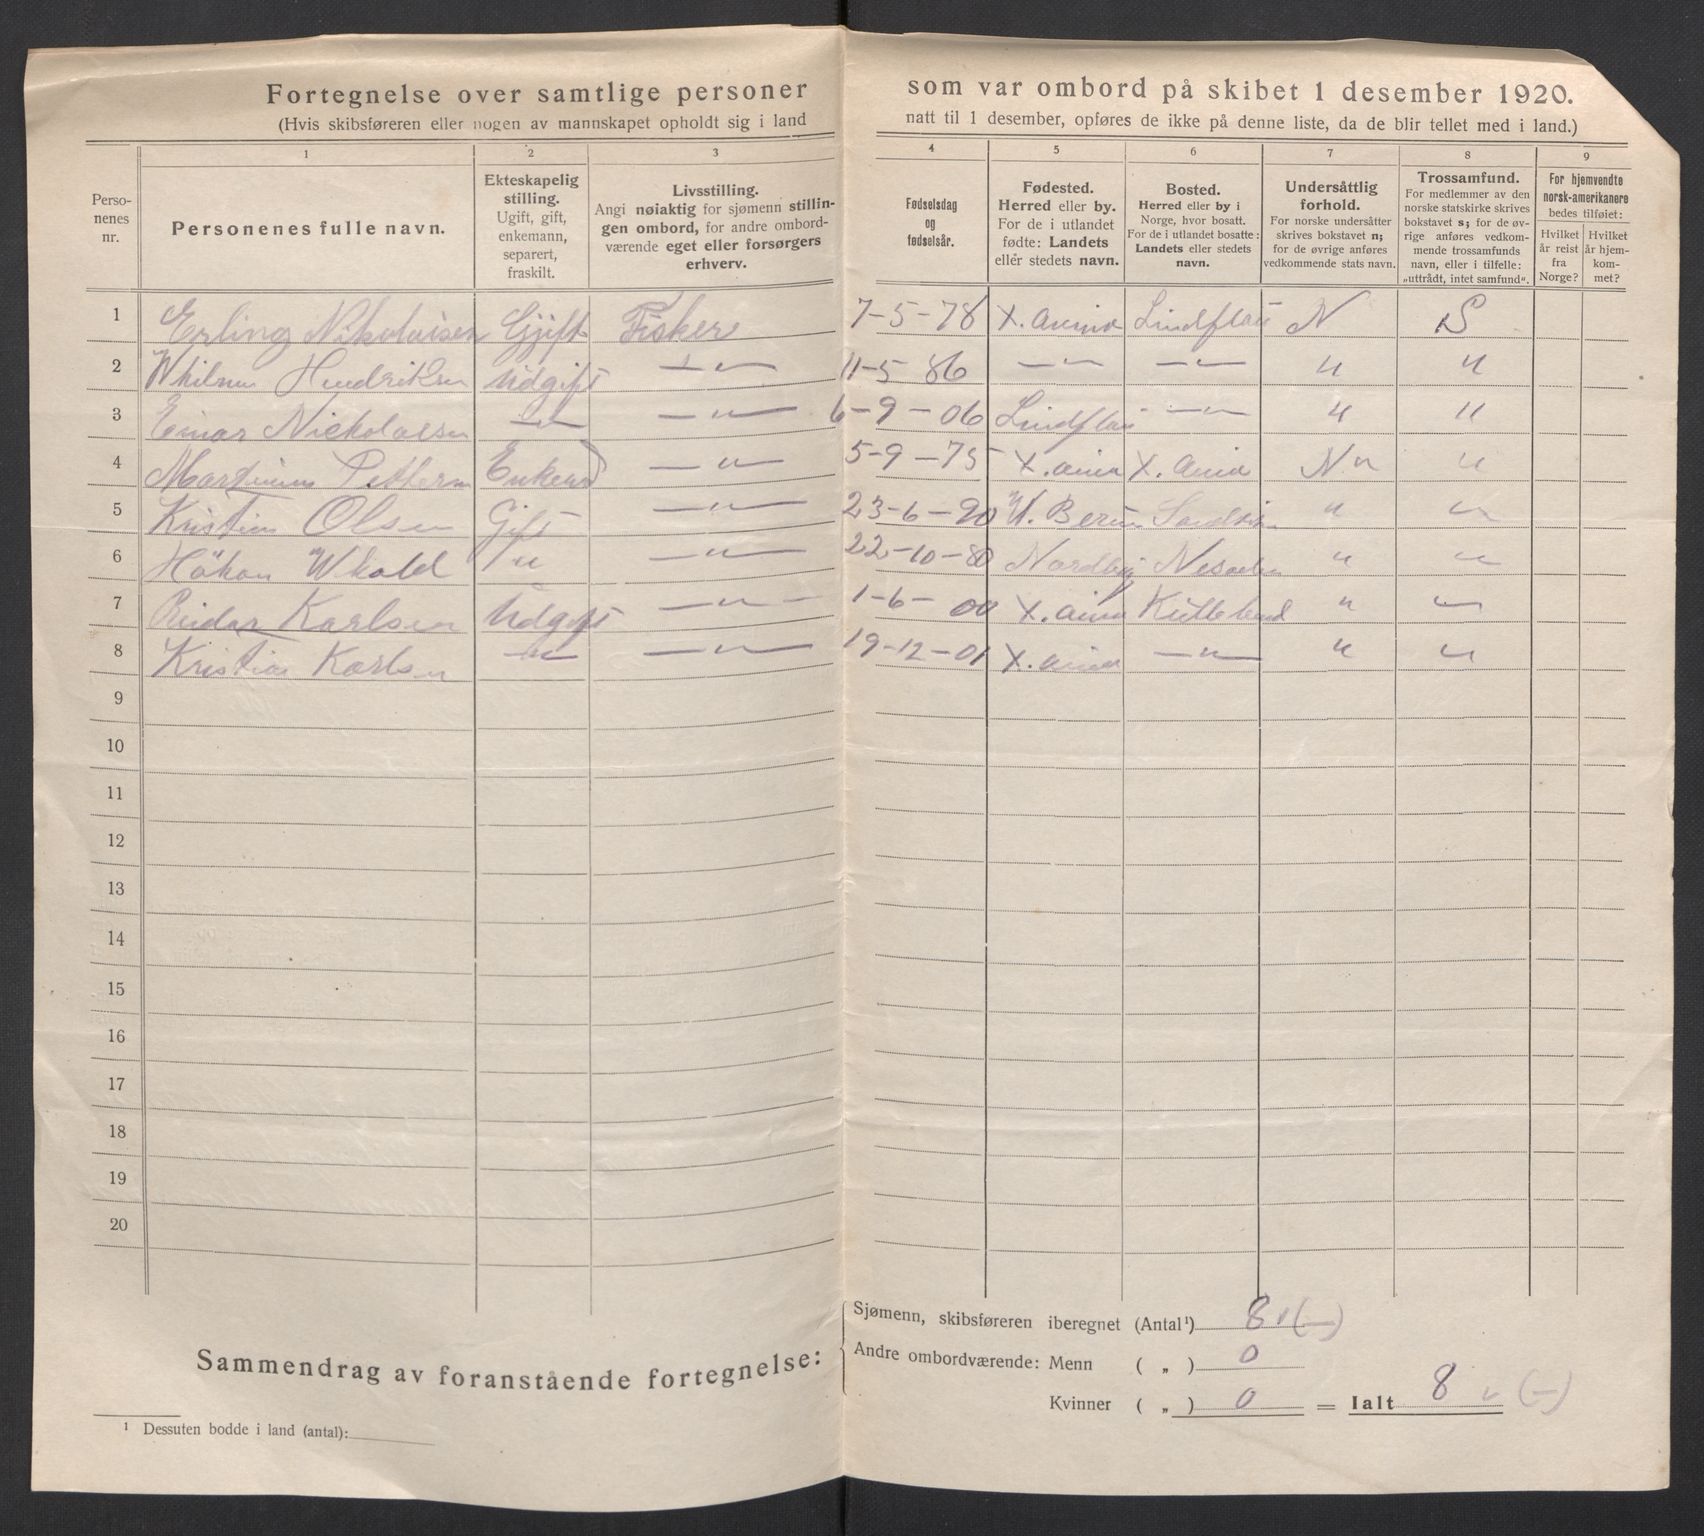 Fortegnelse over samtlige personer som var ombord på skibet 1 desember 1920.
(Hvis skibsføreren eller nogen av mannskapet opholdt sig i land natt til 1 desember, opføres de ikke på denne liste, da de blir tellet med i land.)
Perso-
nenes
nr.
1
Personenes fulle navn.
2
Ekteskapelig
stilling.
Ugift, gift,
enkemann,
separert,
fraskilt.
3
Livsstilling.
Angi nøiaktig for sjømenn stillin-
gen ombord, for andre ombord-
værende eget eller forsørgers
erhverv.
4
Fødselsdag
og
fødselsår.
5
Fødested.
Herred eller by.
For de i utlandet
fødte: Landets
eller stedets navn.
6
Bosted.
Herred eller by i
Norge, hvor bosatt.
For de i utlandet bosatte:
Landets eller stedets
navn.
7
Undersåttlig
forhold.
For norske undersåtter
skrives bokstavet n;
for de øvrige anføres
vedkommende stats navn.
8
Trossamfund.
For medlemmer av den
norske statskirke skrives
bokstavet s; for de øv-
rige anføres vedkom-
mende trossamfunds
navn, eller i tilfelle:
„uttrådt, intet samfund".
9
For hjemvendte
norsk-amerikanere
bedes tilføiet:
Hvilket
år reist
fra
Norge?
Hvilket
år hjem-
kom-
met?
1 Erling Nikolaisen Gjift Fisker 7-5-78 Lindflau N S
2 Hendriksen Udgift —"— 11-5-86 —"— —"— " "
3 Einar Nickolaisen —"— —"— 6-9-06 Lindflau —"— " "
4 Martinius Pettersen Enkem —"— 5-9-75 N " "
5 Kristian Olsen Gift —"— 23-6-90 V. Berum Sandviken " "
6 Håkon " —"— 22-10-80 Nordby Nesodden " "
7 Reidar Karlsen Udgift —"— 1-6-00 " "
8 Kristian Karlsen —"— —"— 19-12-01 —"— " "
9
10
11
12
13
14
15
16
17
18
19
20
Sammendrag av foranstående fortegnelse:
Sjømenn, skibsføreren iberegnet (Antal¹) 8 v (—)
Andre ombordværende: Menn ( „ ) 0
Kvinner ( „ ) 0 = Ialt 8 v (—)
¹ Dessuten bodde i land (antal):